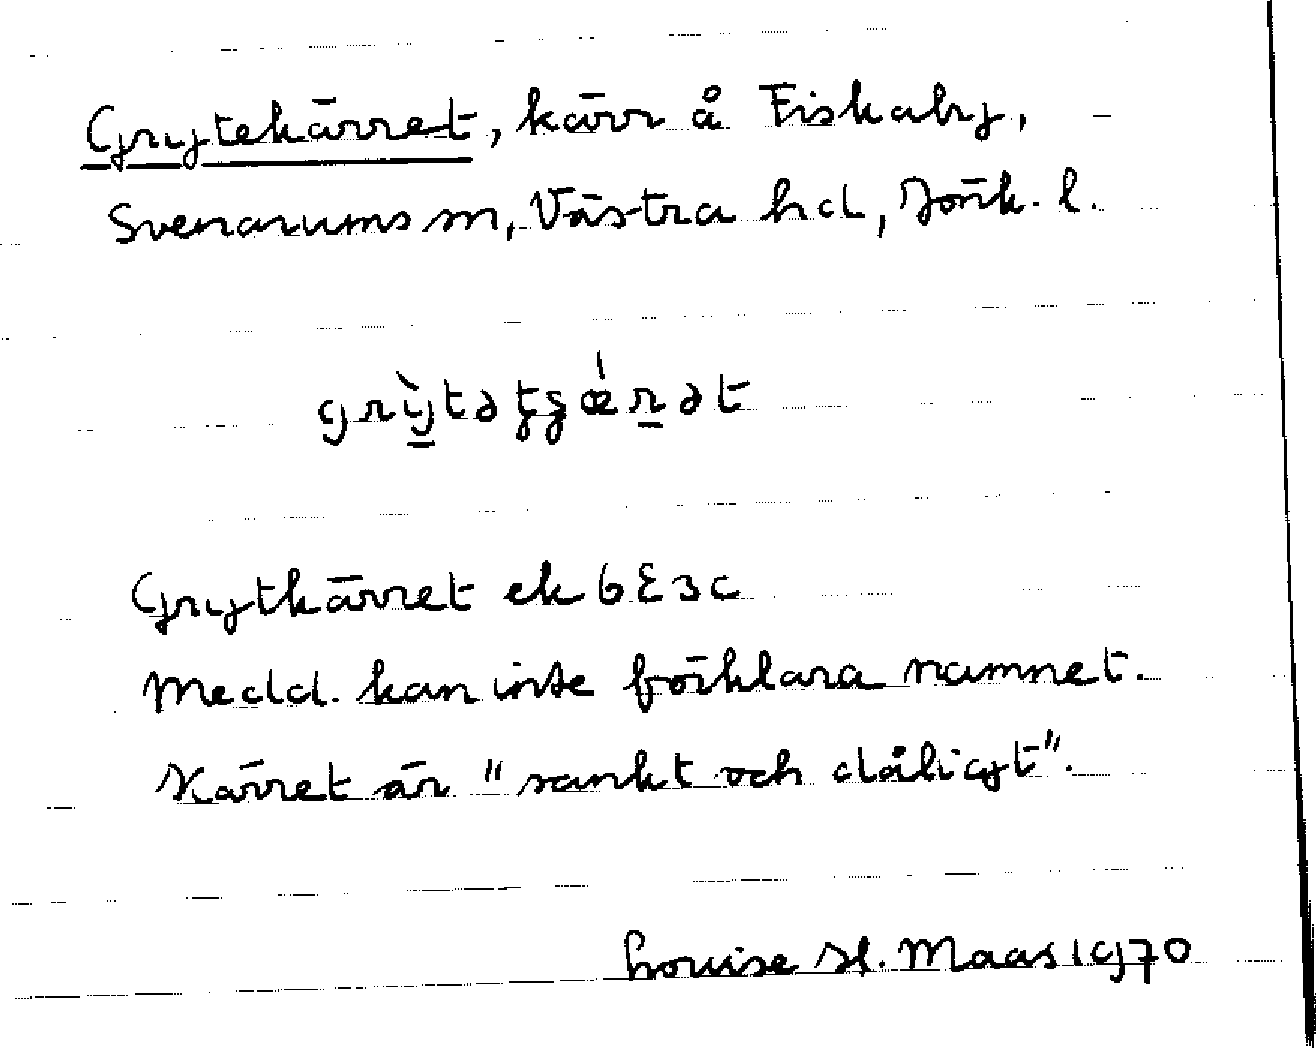 Grytekärret, kärr å Fiskaby,
Svenarums sn, Västra hd, Jönk. l.
grỳtətʒǽrət
Grytkärret ek 6E3c
Medd. kan inte förklara namnet.
Kärret är "sankt och dåligt".
Louise H. Maas 1970